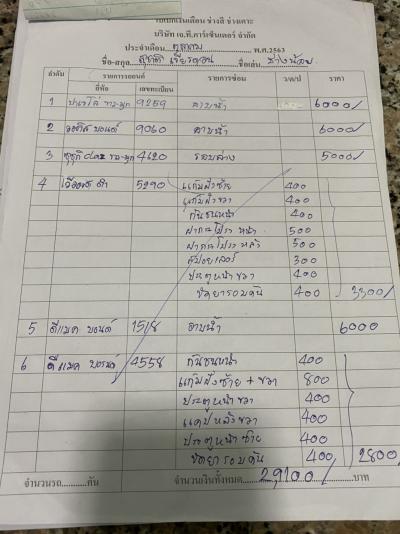 ใบเบิกเงินเดือน ช่างสี ช่างเคาะ
บริษัท เอ.ที.คาร์เซ็นเตอร์ จำกัด
ประจำเดือน ตุลาคม พ.ศ.2563
ชื่อ-สกุล สุชาติ ชื่อเล่น
ลำดับ รายการรถยนต์ รายการซ่อม ว/ด/ป ราคา
ยี่ห้อ เลขทะเบียน
1 ปาเจโร่ ขาว-มุก 9259 อาบน้ำ 6000/
2 บรอนด์ 9060 อาบน้ำ 6000/
3 ซูซูกิ ขาว-มุก 4620 รอบล่าง 5000/
4 ดำ 5290 แก้มฝั่งซ้าย 400
แก้มฝั่งขวา 400
กันชนหน้า 400
ฝากระโปรง หน้า 500
ฝากระโปรง หลัง 500
สปอยเลอร์ 300
ประตูหน้า ขวา 400
ขัดยารอบคัน 400 3300/
5 ดีแมค บรอนด์ 1518 อาบน้ำ 6000
6 ดีแมค บรอนด์ 4558 กันชนหน้า 400
แก้มฝั่งซ้าย + ขวา 800
ประตูหน้า ขวา 400
แคปหลังขวา 400
ประตูหน้า ซ้าย 400
ขัดยารอบคัน 400 2800/
จำนวนรถ..........คัน จำนวนเงินทั้งหมด 29,100/ บาท